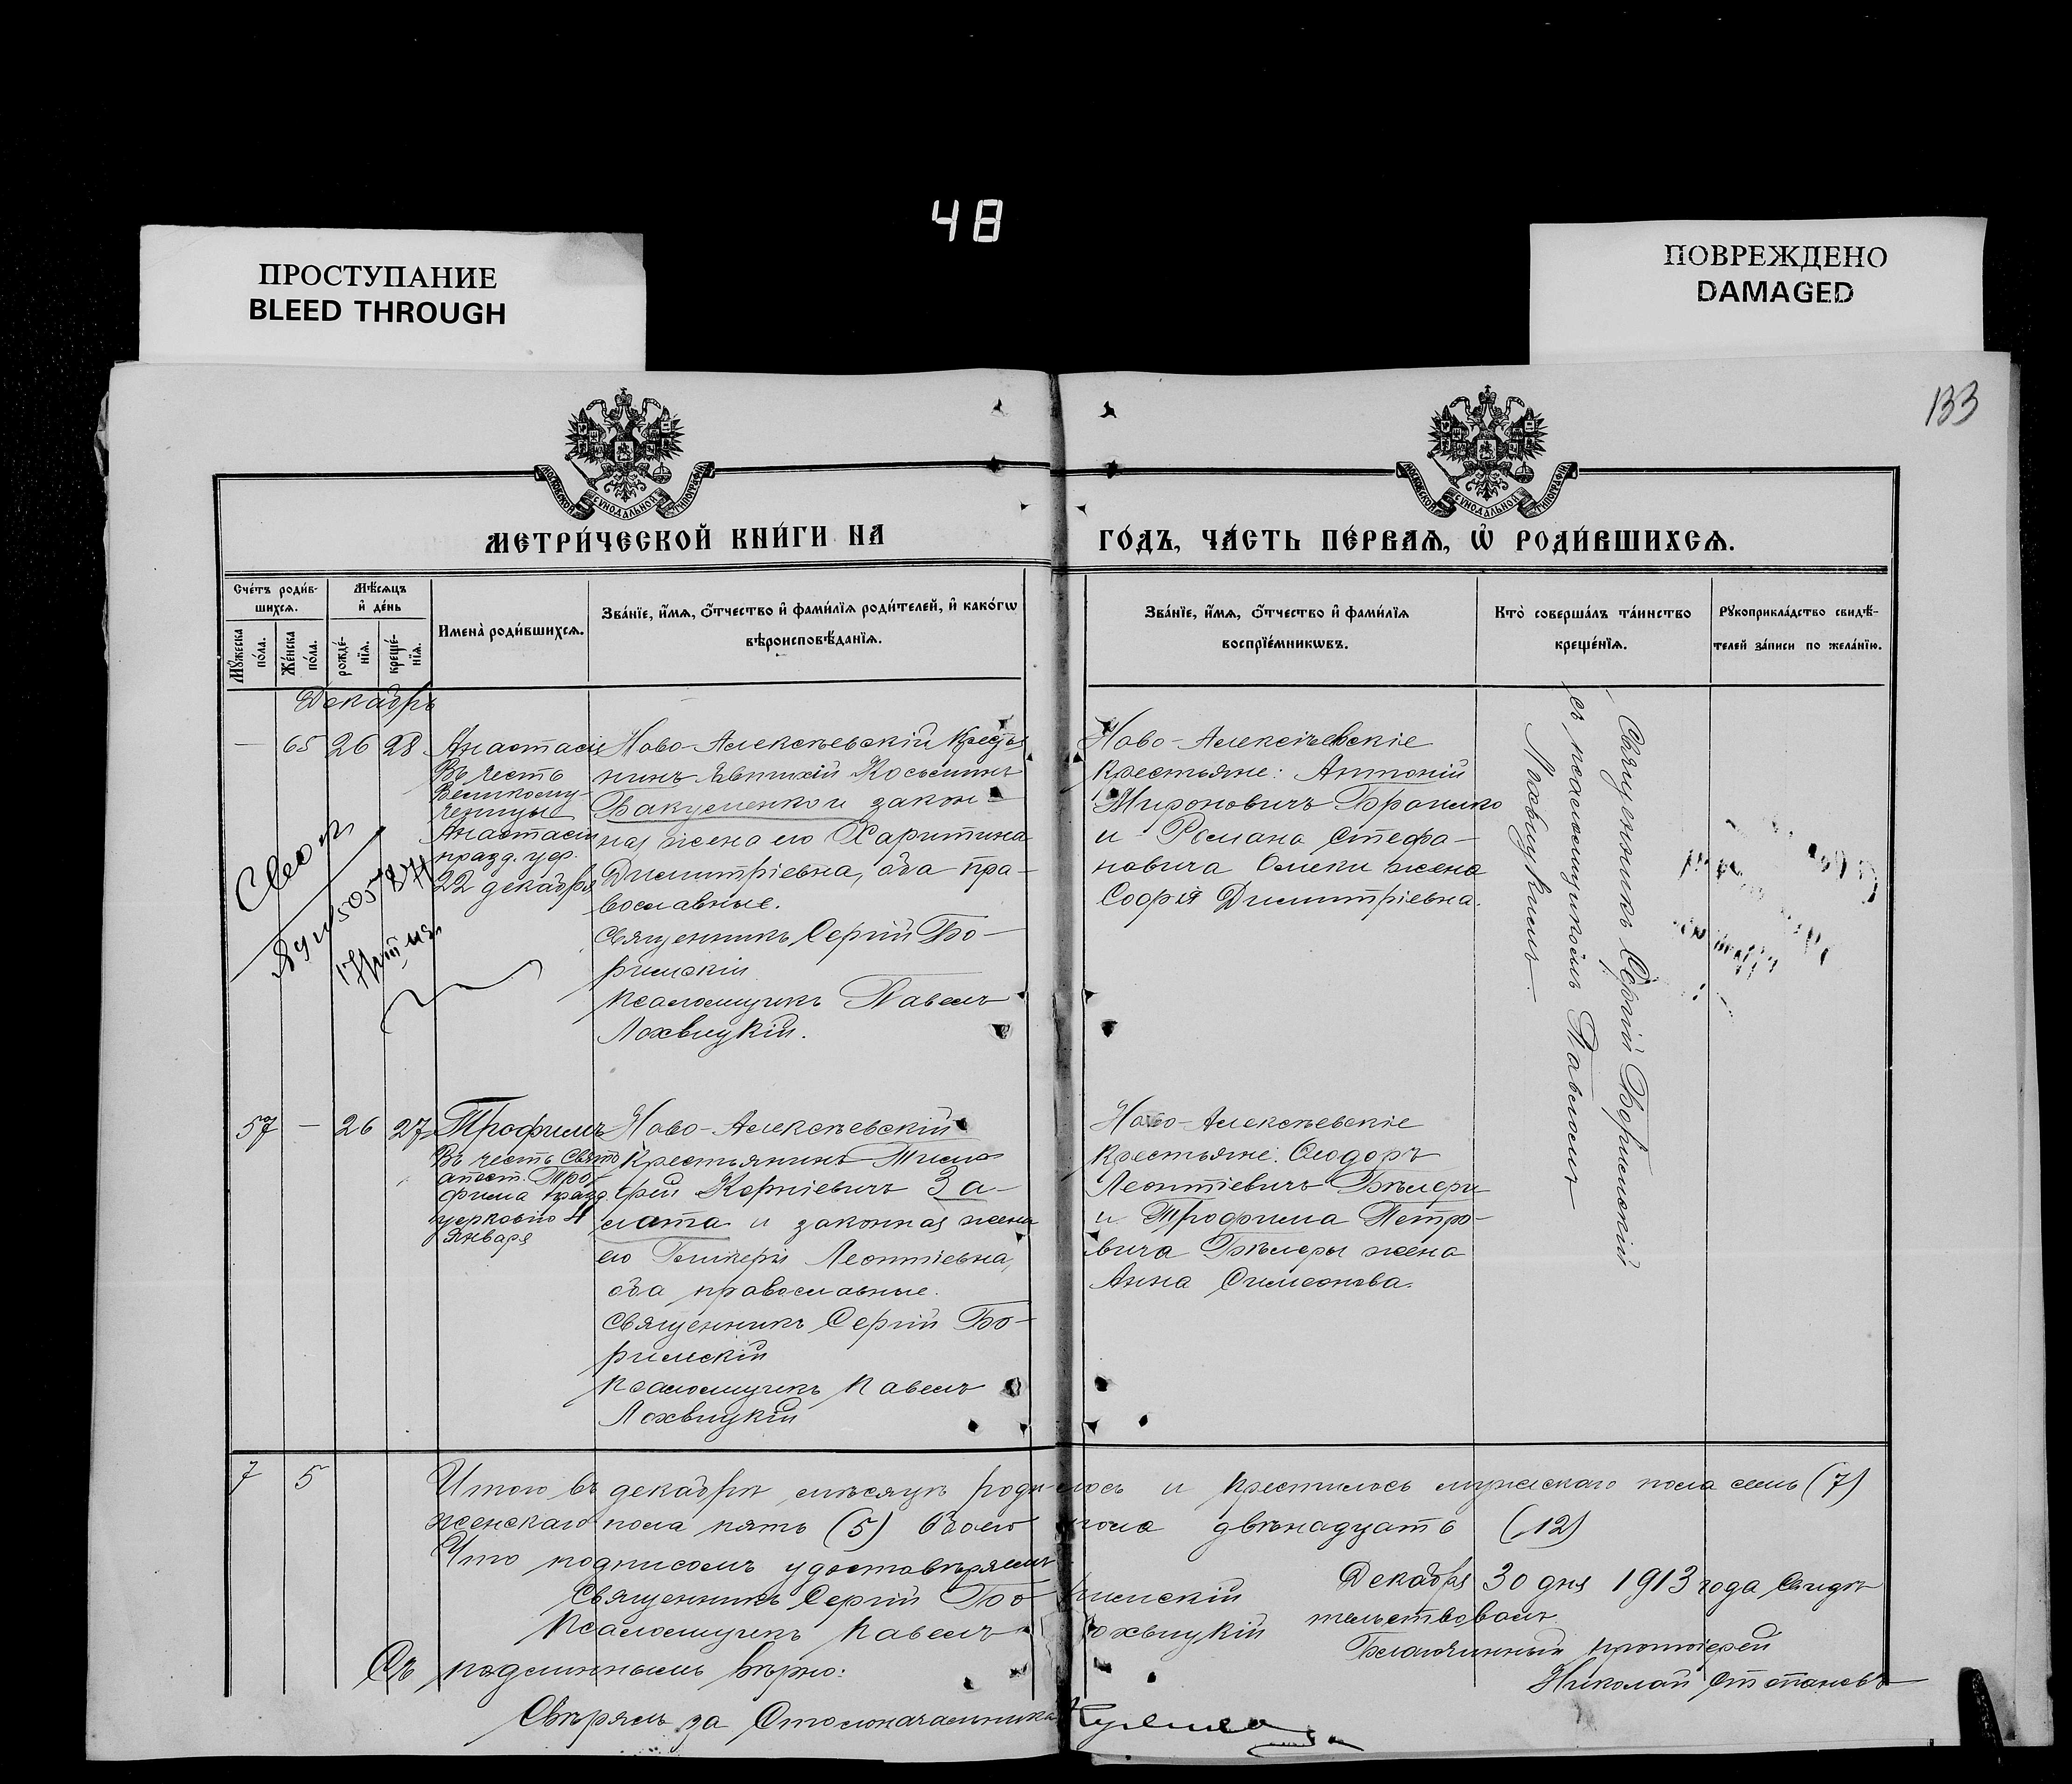 48
ПРОСТУПАНИЕ
BLEED THROUGH
ПОВРЕЖДЕНО
DAMAGED
133
МОСКОВСКОЙ СѴНОДАЛЬНОЙ ТИПОГРАФІИ
МОСКОВСКОЙ СѴНОДАЛЬНОЙ ТИПОГРАФІИ
МЕТРИ́ЧЕСКОЙ КНИ́ГИ НА
ГО́ДЪ, ЧА́СТЬ ПЕ́РВАѦ, Ѡ҆ РОДИ́ВШИХСѦ.
Сче́тъ роди́в-
шихсѧ.
Мꙋ́жеска по́ла.
Же́нска по́ла.
Мѣ́сѧцъ
и҆ де́нь
рожде́-
нїѧ.
креще́-
нїѧ.
Имена̀ роди́вшихсѧ.
Зва́нїе, и҆́мѧ, ѻ҆́тчество и҆ фами́лїѧ роди́телей, и҆ како́гѡ
вѣроисповѣ́данїѧ.
Зва́нїе, и҆́мѧ, ѻ҆́тчество и҆ фами́лїѧ
воспрїе́мникѡвъ.
Кто̀ соверша́лъ та́инство
креще́нїѧ.
Рꙋкоприкла́дство свидѣ́-
телей за́писи по жела́нїю.
Декабрь
— 65 26 28
Анастасія
Въ честь
Великому-
ченицы
Анастасіи
празд. цер.
22 декабря
Ново-Алексѣевскій крестья
нинъ Евтихій Косьминъ
Бакуменко и закон-
ная жена его Харитина
Димитріевна, оба пра-
вославные.
Священникъ Сергій Бо-
римскій
Псаломщикъ Павелъ
Лохвицкій.
Ново-Алексѣевскіе
крестьяне: Антоній
Мироновичъ Брошко
и Романа Стефа-
новича Омеки жена
Софія Димитріевна.
Священникъ Сергій Боримскій
съ псаломщикомъ Павломъ
Лохвицкимъ
57 — 26 27
Трофимъ
Въ честь Свято
апост. Тро-
фима празд.
церковію 4
Января
Ново-Алексѣевскій
крестьянинъ Тимо
фей Корніевичъ За-
лата и законная жена
его Гликерія Леонтіевна,
оба православные.
Священникъ Сергій Бо-
римскій
Псаломщикъ Павелъ
Лохвицкій
Ново-Алексѣевскіе
крестьяне: Ѳеодоръ
Леонтіевичъ
и Трофима Петро-
вича жена
Анна Симеонова.
7 5
Итого въ декабрѣ мѣсяцѣ родилось и крестилось мужескаго пола семь (7)
женскаго пола пять (5) Обоего пола двѣнадцать (12)
Что подписомъ удостовѣряемъ
Священникъ Сергій Боримскій
Псаломщикъ Павелъ Лохвицкій
Декабря 30 дня 1913 года Свидѣ
тельствовалъ
Благочинный протоіерей
Николай Степановъ
Съ подлиннымъ вѣрно:
Свѣрялъ за Столоначальника